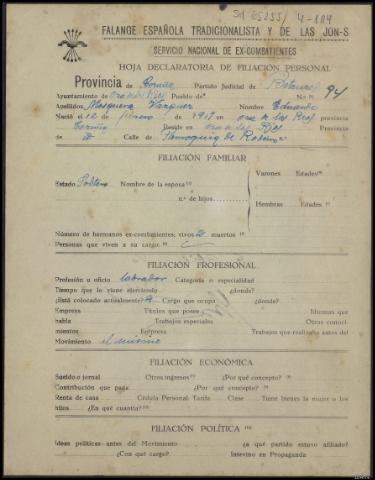 FALANGE ESPAÑOLA TRADICIONALISTA Y DE LAS JON-S
SERVICIO NACIONAL DE EX-COMBATIENTES
HOJA DECLARATORIA DE FILIACIÓN PERSONAL
Provincia de Coruña Partido Judicial de Betanzos
Ayuntamiento de Oza de los Ríos Pueblo de N.º 94
Apellidos Mosquera Vázquez Nombre Eduardo
Nació el 12 de de 1917 en Oza de los Ríos provincia
Coruña Reside en Oza de los Ríos provincia
de Calle de
FILIACIÓN FAMILIAR
Estado Soltero Nombre de la esposa
Varones Edades
n.º de hijos
Hembras Edades
Número de hermanos ex-combatientes; vivos 2 muertos
Personas que viven a su cargo
FILIACIÓN PROFESIONAL
Profesión u oficio labrador Categoría o especialidad
Tiempo que lo viene ejerciendo ¿donde?
¿Está colocado actualmente? Cargo que ocupa ¿donde?
Empresa Títulos que posee Idiomas que
habla Trabajos especiales Otros conoci-
mientos Empresa Trabajos que realizaba antes del
Movimiento el mismo
FILIACIÓN ECONÓMICA
Sueldo o jornal Otros ingresos ¿Por qué concepto?
Contribución que paga ¿Por qué concepto?
Renta de casa Cédula Personal Tarifa Clase Tiene bienes la mujer o los
hijos ¿En qué cuantía?
FILIACIÓN POLÍTICA
Ideas políticas antes del Movimiento ¿a qué partido estuvo afiliado?
¿Con qué cargo? Intervino en Propaganda